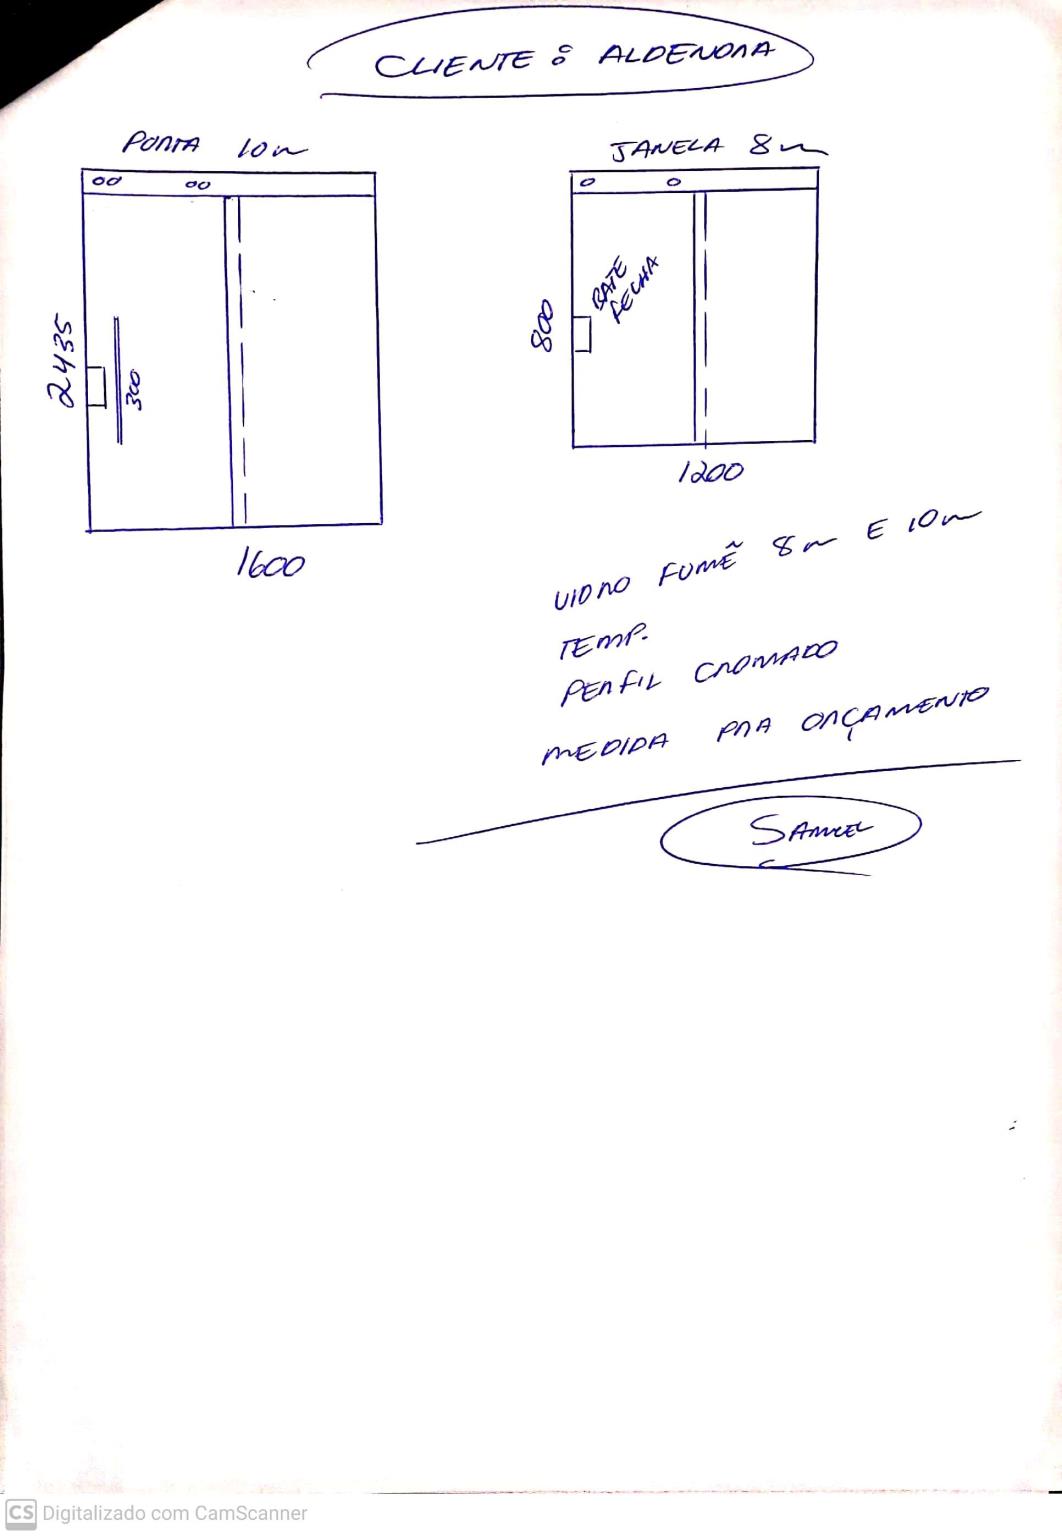 CLIENTE : ALDENORA
PORTA 10m
JANELA 8m
2435
300
1600
BATE
FECHA
800
1200
VIDRO FUMÊ 8m E 10m
TEMP.
PERFIL CROMADO
MEDIDA PRA ORÇAMENTO
SAMUEL
CS Digitalizado com CamScanner